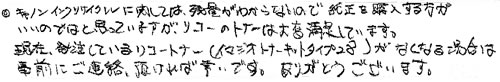 ◎ キャノンインクリサイクルに関しては、残量がわからないので純正を購入する方が
いいのではと思っていますが、リコーのトナーは大変満足しています。
現在、発注しているリコートナー(イマジオトナーキットタイプ28)がなくなる場合は
事前にご連絡頂ければ幸いです。ありがとうございます。